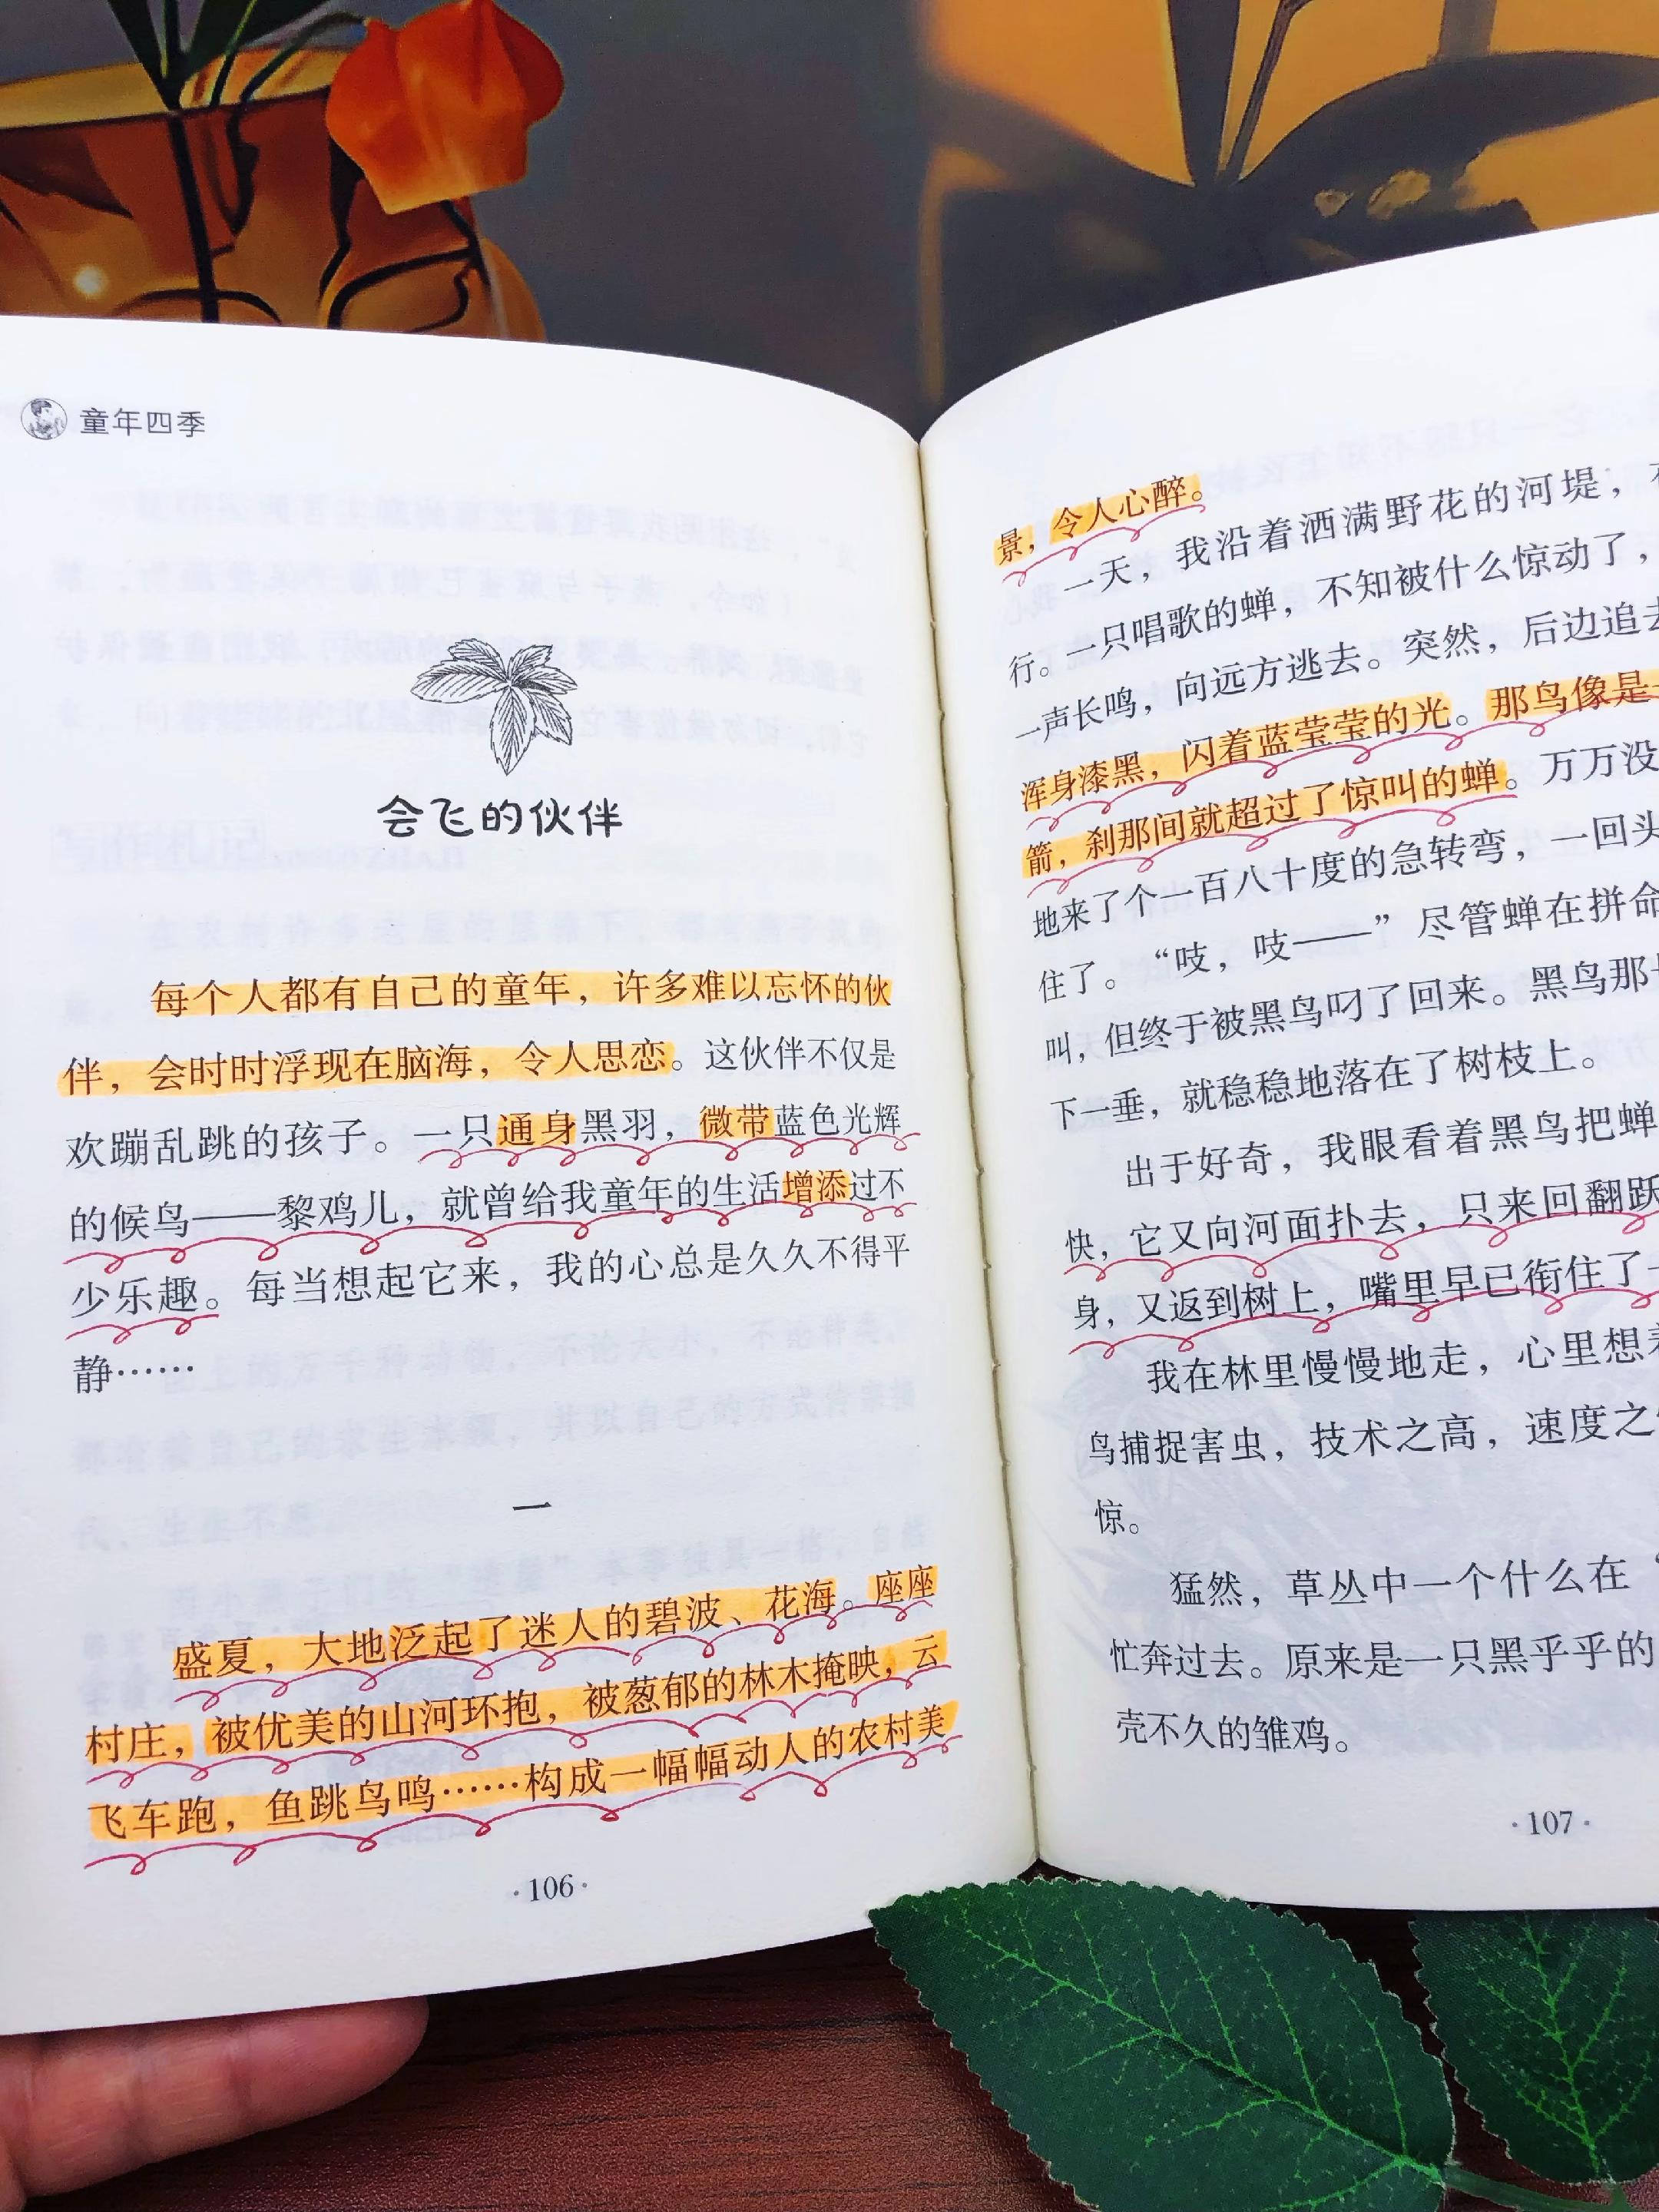 童年四季
会飞的伙伴
每个人都有自己的童年，许多难以忘怀的伙
伴，会时时浮现在脑海，令人思恋。这伙伴不仅是
欢蹦乱跳的孩子。一只通身黑羽，微带蓝色光辉
的候鸟——黎鸡儿，就曾给我童年的生活增添过不
少乐趣。每当想起它来，我的心总是久久不得平
静……
一
盛夏，大地泛起了迷人的碧波、花海。座座
村庄，被优美的山河环抱，被葱郁的林木掩映，云
飞车跑，鱼跳鸟鸣……构成一幅幅动人的农村美
·106·
景，令人心醉。
一天，我沿着洒满野花的河堤，
行。一只唱歌的蝉，不知被什么惊动了，
一声长鸣，向远方逃去。突然，后边追去
浑身漆黑，闪着蓝莹莹的光。那鸟像是
箭，刹那间就超过了惊叫的蝉。万万没
地来了个一百八十度的急转弯，一回头
住了。“吱，吱——”尽管蝉在拼命
叫，但终于被黑鸟叼了回来。黑鸟那
下一垂，就稳稳地落在了树枝上。
出于好奇，我眼看着黑鸟把蝉
快，它又向河面扑去，只来回翻跃
身，又返到树上，嘴里早已衔住了
我在林里慢慢地走，心里想着
鸟捕捉害虫，技术之高，速度之
惊。
猛然，草丛中一个什么在“
忙奔过去。原来是一只黑乎乎的
壳不久的雏鸡。
·107·